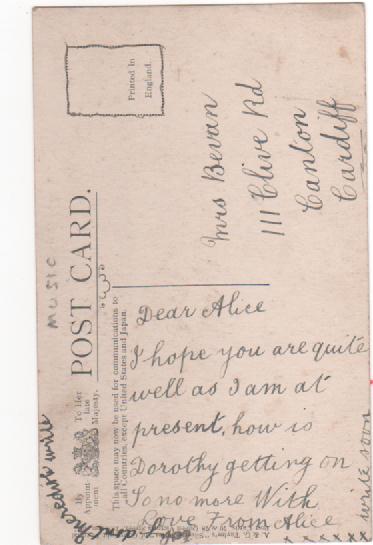 Printed in
England.
MUSIC
POST CARD.
By
Appoint-
ment
To Her
late
Majesty.
This space may now be used for communications to
all Countries, except United States and Japan.
Mrs Bevan
111 Clive Rd
Canton
Cardiff
Dear Alice
I hope you are quite
well as I am at
present, how is
Dorothy getting on
So no more With
Love From Alice
x x x x x x x
write soon